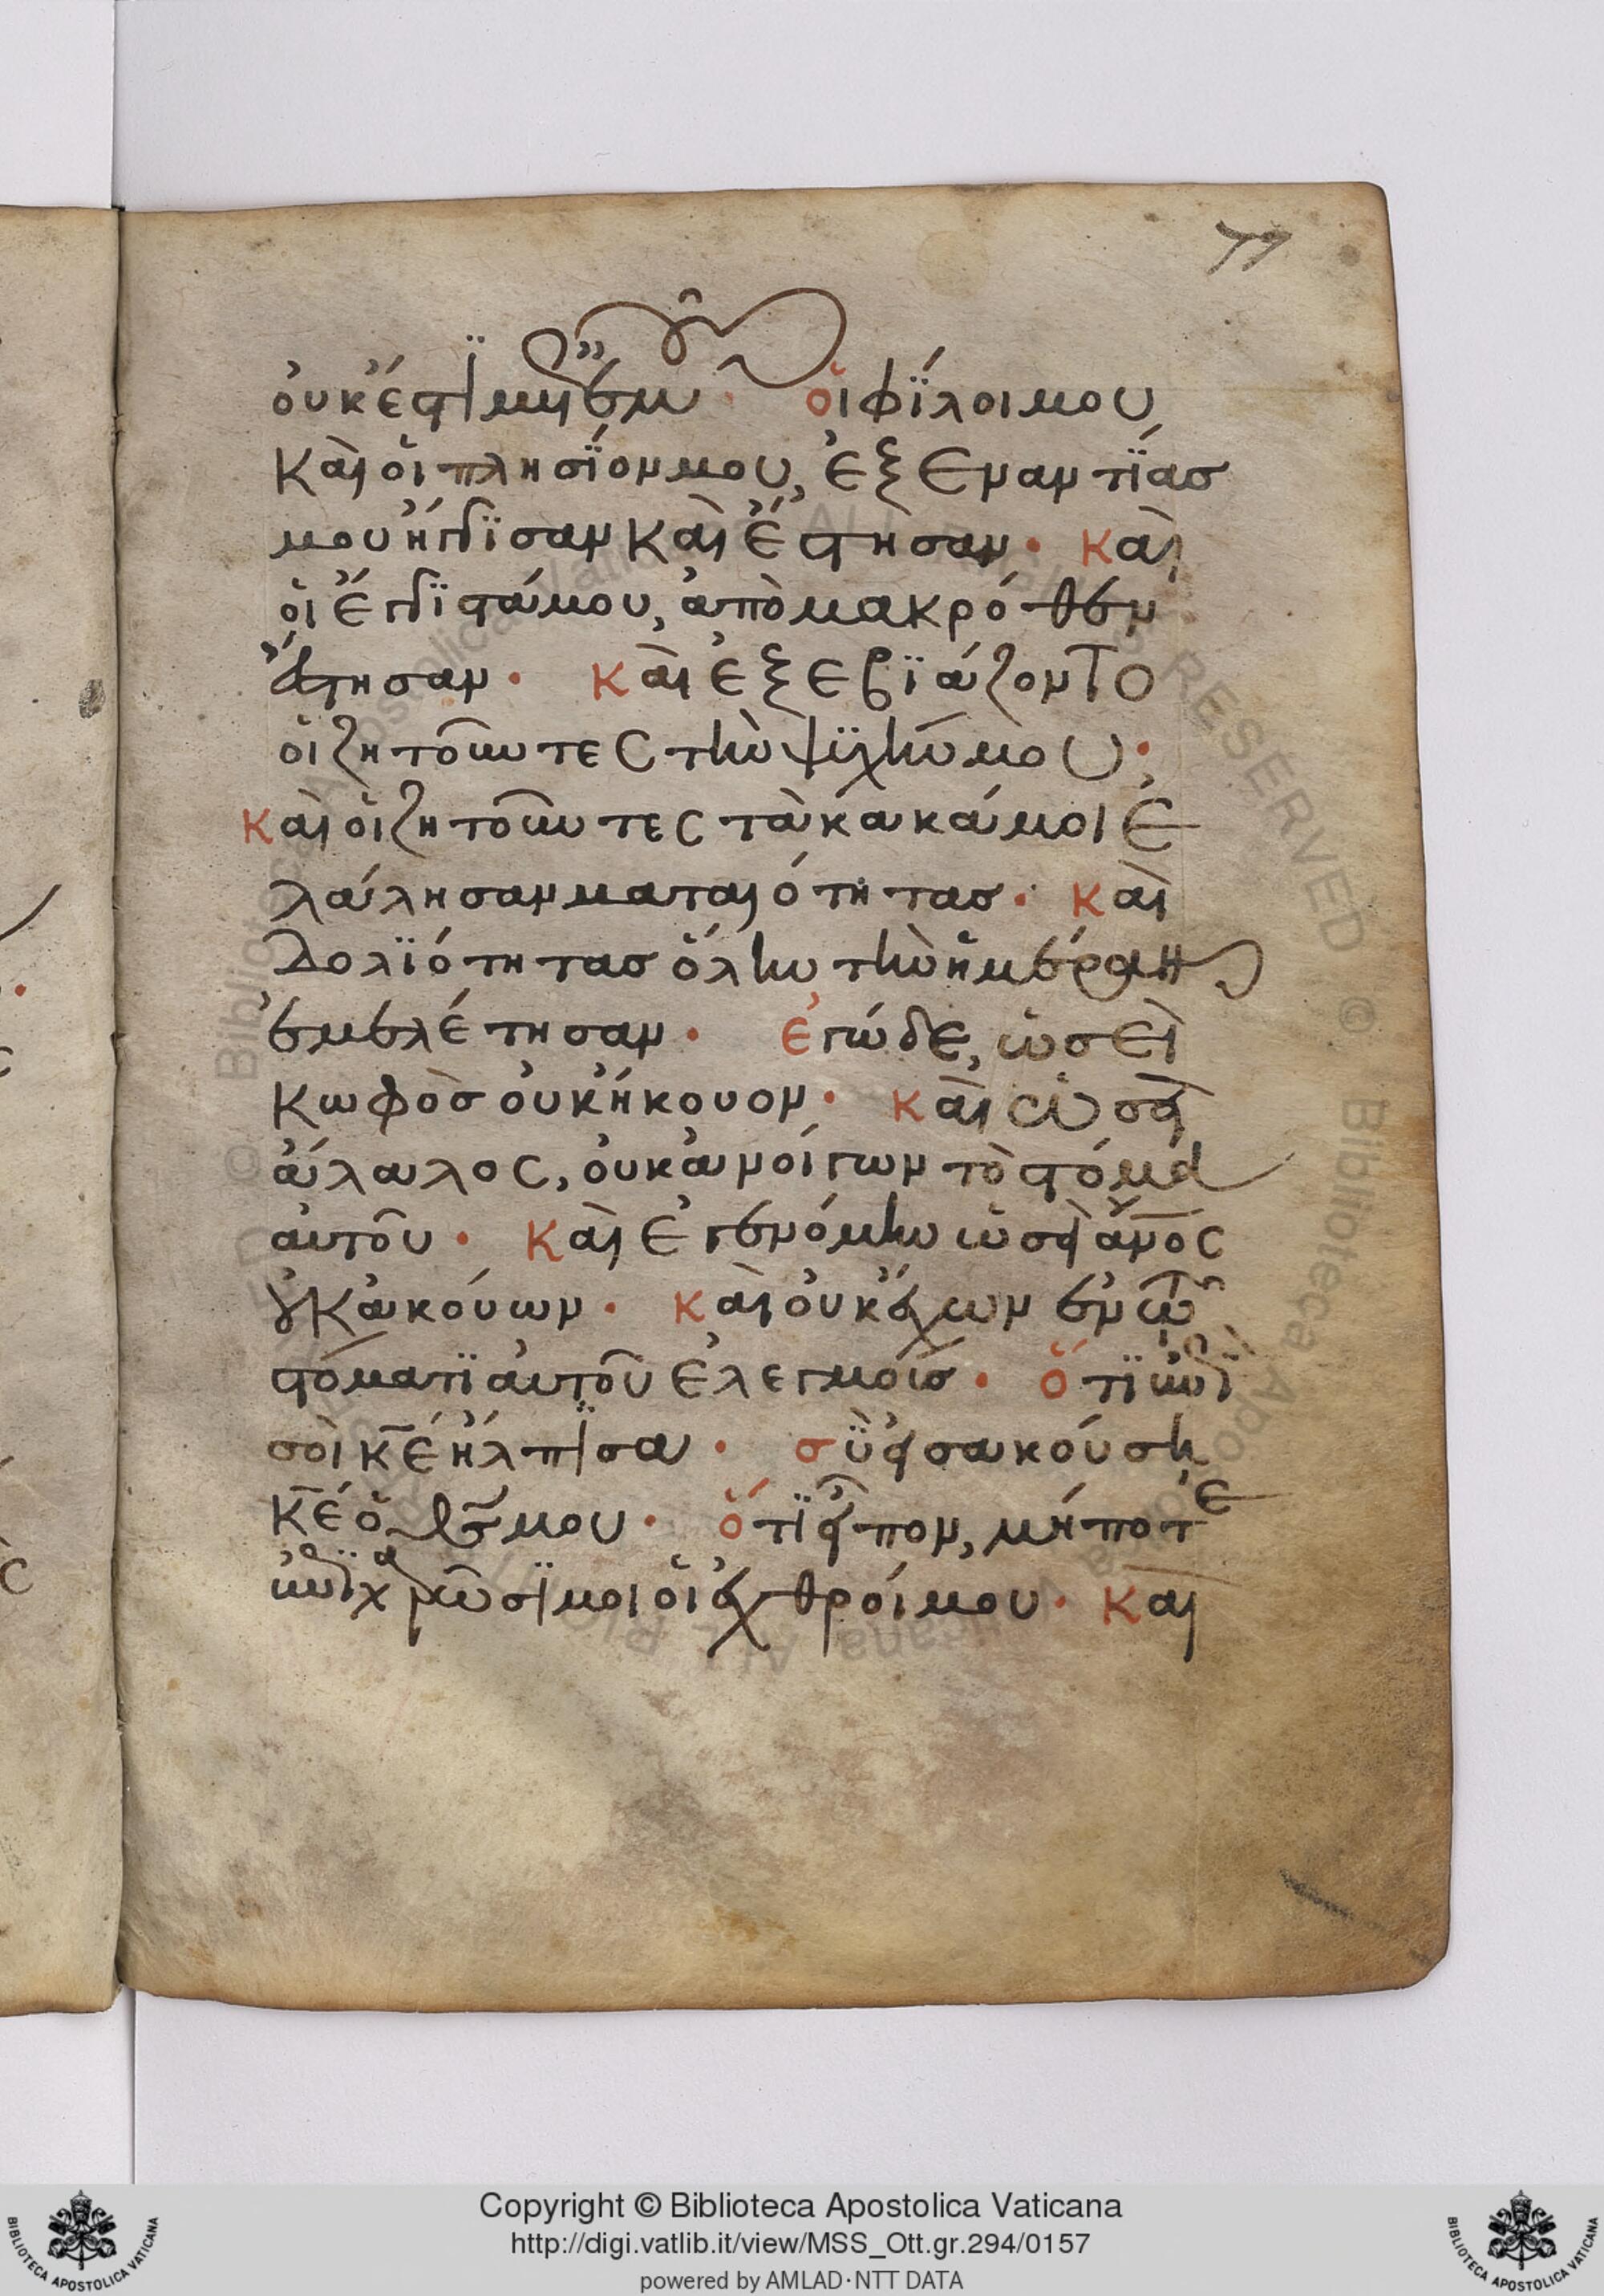 77
οὐκ ἔστι μετ' ἐμοῦ· οἱ φίλοι μου
καὶ οἱ πλησίον μου, ἐξ ἐναντίας
μου ἤγγισαν καὶ ἔστησαν· καὶ
οἱ ἔγγιστά μου, ἀπὸ μακρόθεν
ἔστησαν· καὶ ἐξεβιάζοντο
οἱ ζητοῦντες τὴν ψυχήν μου·
καὶ οἱ ζητοῦντες τὰ κακά μοι ἐ
λάλησαν ματαιότητας· καὶ
δολιότητας ὅλην τὴν ἡμέραν
ἐμελέτησαν· ἐγὼ δὲ, ὡσεὶ
κωφὸς οὐκ ἤκουον· καὶ ὡσεὶ
ἄλαλος, οὐκ ἀνοίγων τὸ στόμα
αὐτοῦ· καὶ ἐγενόμην ὡσεὶ ἄνος
οὐκ ἀκούων· καὶ οὐκ ἔχων ἐν τῷ
στόματι αὐτοῦ ἐλεγμοίς· ὅτι ἐπὶ
σοὶ κε ἤλπισα· σὺ εἰσακούση
κε ὁ θσ μου· ὅτι εἶπον, μήποτε
ἐπιχαρῶσι μοι οἱ ἐχθροί μου· καὶ
Copyright © Biblioteca Apostolica Vaticana
http://digi.vatlib.it/view/MSS_Ott.gr.294/0157
powered by AMLAD·NTT DATA
BIBLIOTECA APOSTOLICA VATICANA
BIBLIOTECA APOSTOLICA VATICANA